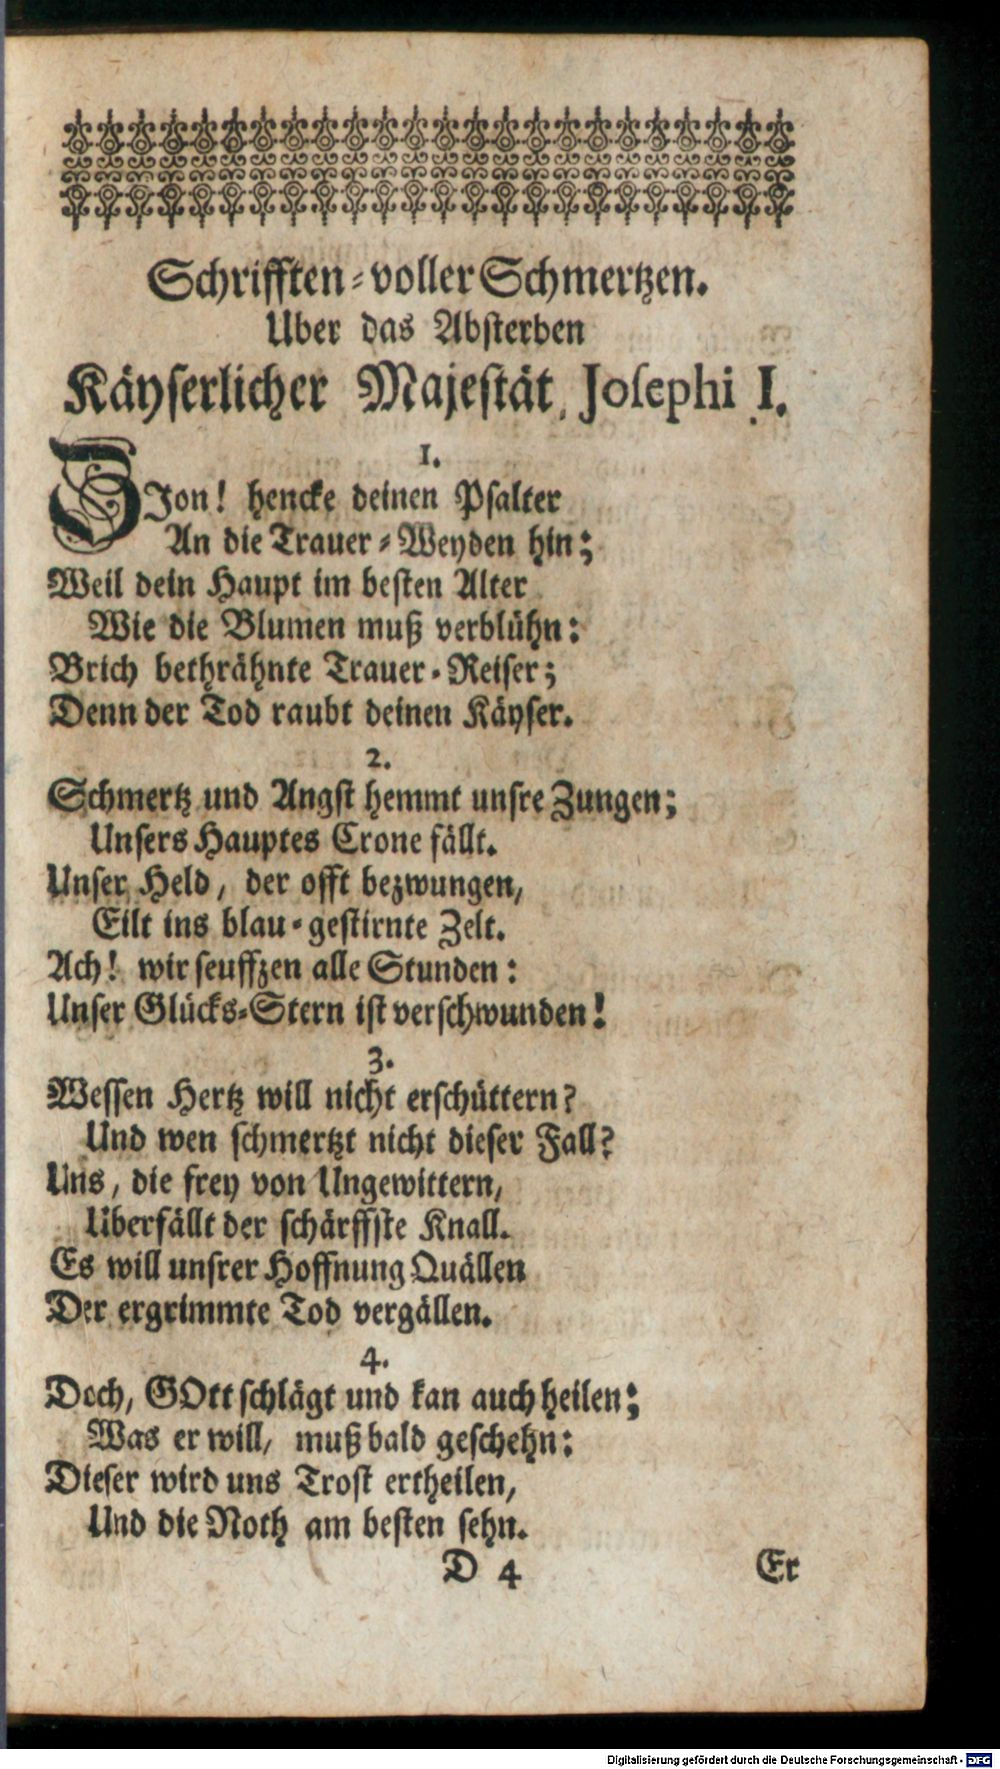 Schrifften-voller Schmertzen.
Uber das Absterben
Käyserlicher Majestät, Josephi I.
1.
ZJon! hencke deinen Psalter
An die Trauer-Weyden hin;
Weil dein Haupt im besten Alter
Wie die Blumen muß verblühn:
Brich bethrähnte Trauer-Reiser;
Denn der Tod raubt deinen Käyser.
2.
Schmertz und Angst hemmt unsre Zungen;
Unsers Hauptes Crone fällt.
Unser Held, der offt bezwungen,
Eilt ins blau-gestirnte Zelt.
Ach! wir seuffzen alle Stunden:
Unser Glücks-Stern ist verschwunden!
3.
Wessen Hertz will nicht erschüttern?
Und wen schmertzt nicht dieser Fall?
Uns, die frey von Ungewittern,
Uberfällt der schärffste Knall.
Es will unsrer Hoffnung Quällen
Der ergrimmte Tod vergällen.
4.
Doch, GOtt schlägt und kan auch heilen;
Was er will, muß bald geschehn:
Dieser wird uns Trost ertheilen,
Und die Noth am besten sehn.
D 4 Er
Digitalisierung gefördert durch die Deutsche Forschungsgemeinschaft - DFG